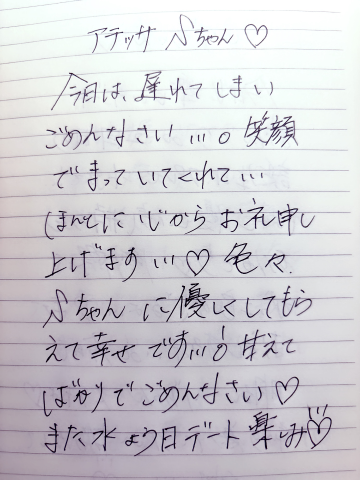 アテッサ Sちゃん♡
今日は、遅れてしまい
ごめんなさい…。笑顔
でまっていてくれて…
ほんとに心から お礼申し
上げます…♡ 色々、
Sちゃん に優しくしてもら
えて幸せ です…! 甘えて
ばかりで ごめんなさい♡
また水よう日デート 楽しみ♡